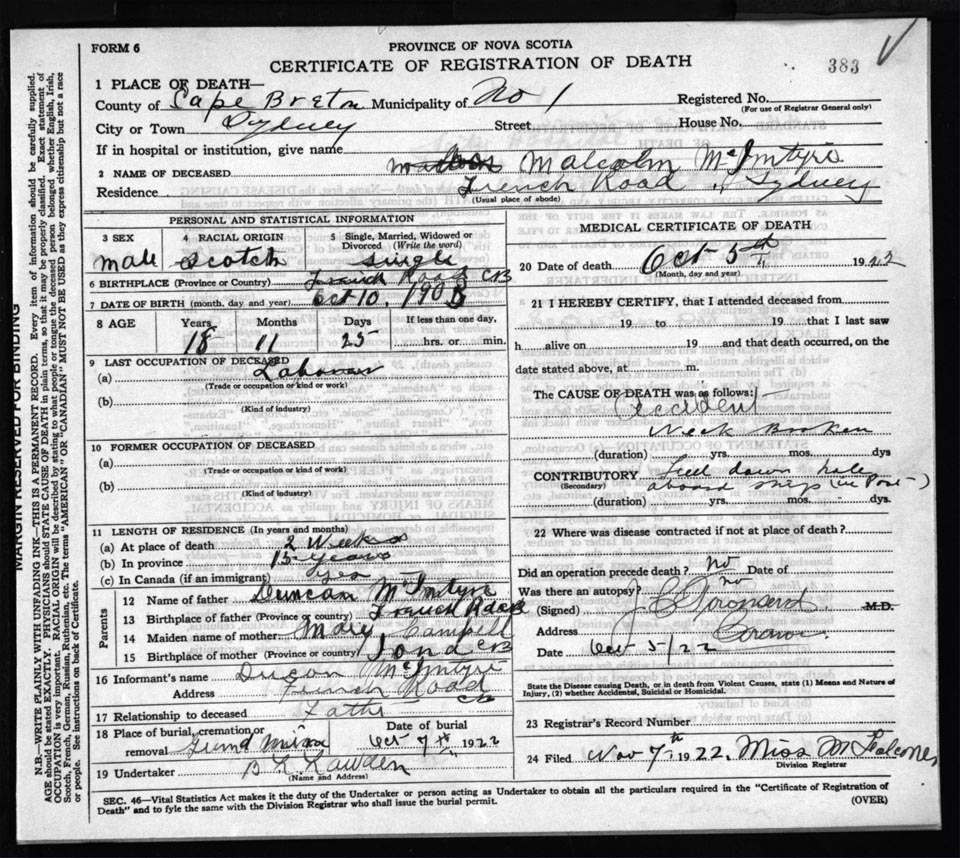 FORM 6
PROVINCE OF NOVA SCOTIA
CERTIFICATE OF REGISTRATION OF DEATH
383
1 PLACE OF DEATH—
County of Cape Breton Municipality of No 1 Registered No.
(For use of Registrar General only)
City or Town Sydney Street House No.
If in hospital or institution, give name
2 NAME OF DECEASED Malcolm McIntyre
Residence French Road Sydney
(Usual place of abode)
PERSONAL AND STATISTICAL INFORMATION
3 SEX 4 RACIAL ORIGIN 5 Single, Married, Widowed or Divorced (Write the word)
male Scotch single
6 BIRTHPLACE (Province or Country) French Road CB
7 DATE OF BIRTH (month, day and year) Oct 10, 190
8 AGE Years Months Days If less than one day,
18 11 25 hrs. or min.
9 LAST OCCUPATION OF DECEASED
(a) Labourer
(Trade or occupation or kind or work)
(b)
(Kind of industry)
10 FORMER OCCUPATION OF DECEASED
(a)
(Trade or occupation or kind of work)
(b)
(Kind of industry)
11 LENGTH OF RESIDENCE (In years and months)
(a) At place of death 2 Weeks
(b) In province years
(c) In Canada (if an immigrant)
Parents
12 Name of father Duncan McIntyre
13 Birthplace of father (Province or country) French Road
14 Maiden name of mother Mary Campbell
15 Birthplace of mother (Province or country) Iona CB
16 Informant's name McIntyre
Address French Road CB
17 Relationship to deceased Father
18 Place of burial, cremation or removal Date of burial
Oct 7th 1922
19 Undertaker
(Name and Address)
MEDICAL CERTIFICATE OF DEATH
20 Date of death Oct 5th 1922
(Month, day and year)
21 I HEREBY CERTIFY, that I attended deceased from
19 to 19 that I last saw
h alive on 19 and that death occurred, on the
date stated above, at m.
The CAUSE OF DEATH was as follows:
Accident
Neck Broken
(duration) yrs. mos. dys
CONTRIBUTORY Feel down hole
(Secondary) aboard ship (in Port)
(duration) yrs. mos. dys.
22 Where was disease contracted if not at place of death?
Did an operation precede death? no Date of
Was there an autopsy? no
(Signed) M.D.
Address Coroner
Date Oct 5/22
State the Disease causing Death, or in death from Violent Causes, state (1) Means and Nature of Injury, (2) whether Accidental, Suicidal or Homicidal.
23 Registrar's Record Number
24 Filed Nov 7th 1922, Miss M
Division Registrar
SEC. 46—Vital Statistics Act makes it the duty of the Undertaker or person acting as Undertaker to obtain all the particulars required in the "Certificate of Registration of
Death" and to fyle the same with the Division Registrar who shall issue the burial permit. (OVER)
MARGIN RESERVED FOR BINDING
N.B.—WRITE PLAINLY WITH UNFADING INK—THIS IS A PERMANENT RECORD. Every item of information should be carefully supplied.
AGE should be stated EXACTLY. PHYSICIANS should STATE CAUSE OF DEATH in plain terms, so that it may be properly classified. Exact statement of
OCCUPATION is very important. RACIAL ORIGIN will be described by stating to what people or tongue the deceased person belonged whether English, Irish,
Scotch, French, German, Russian, Ruthenian, etc. The terms "AMERICAN" OR "CANADIAN" MUST NOT BE USED as they express citizenship but not a race
or people. See instructions on back of Certificate.